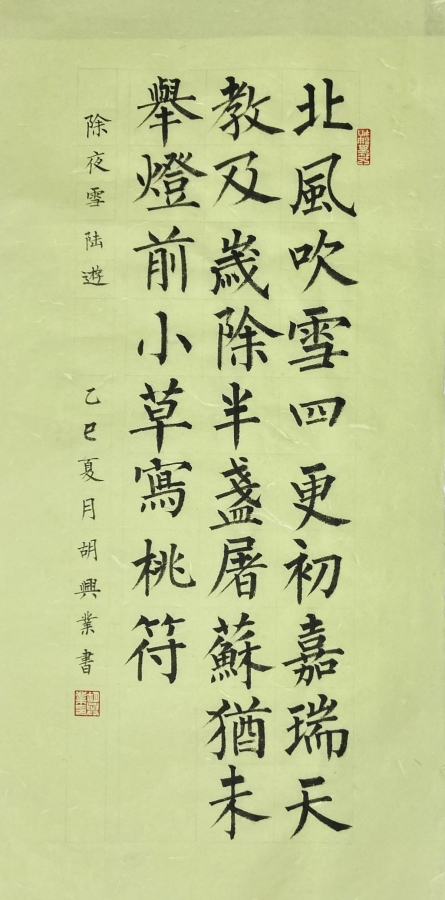 北風吹雪四更初嘉瑞天
教及歲除半盞屠蘇猶未
舉燈前小草寫桃符
除夜雪陆遊
乙巳夏月胡興業書